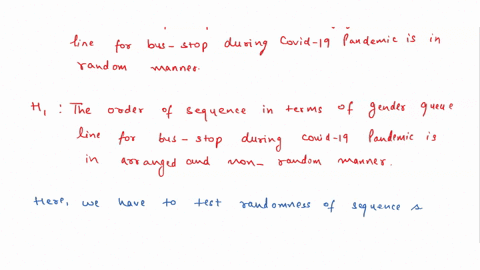 line for bus-stop during Covid-19 Pandemic is in
random manner.
H1 : The order of sequence in terms of gender queue
line for bus-stop during covid-19 Pandemic is
in arranged and non-random manner.
Here, we have to test randomness of sequence s